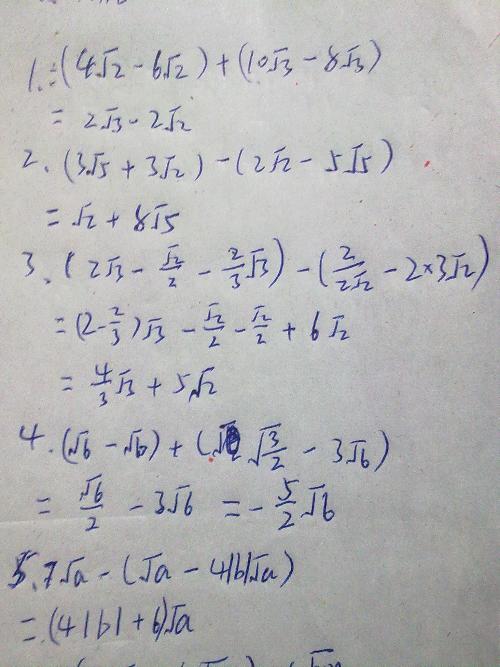 1. = (4√2 - 6√2) + (10√3 - 8√3)
= 2√3 - 2√2
2. (3√5 + 3√2) - (2√2 - 5√5)
= √2 + 8√5
3. (2√3 - √2/2 - 2/3√3) - (2/2√2 - 2×3√2)
= (2-2/3)√3 - √2/2 - √2/2 + 6√2
= 4/3√3 + 5√2
4. (√6 - √6) + (√3/2 - 3√6)
= √6/2 - 3√6 = -5/2√6
5. 7√a - (√a - 4|b|√a)
= (4|b| + 6)√a